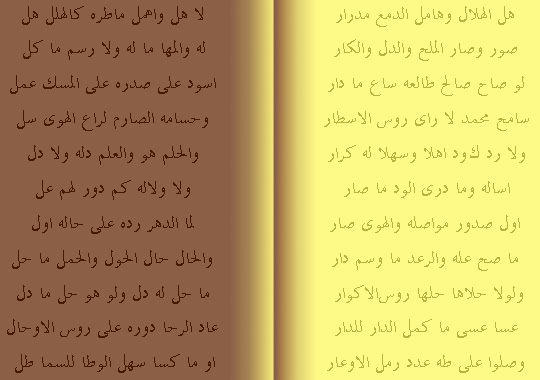 هل الهلال وهامل الدمع مدرار لا هل واهمل ماطره كالهلل هل
صور وصار الملح والدل والكار له والمها ما له ولا رسم ما كل
لو صاح صالح طالعه ساع ما دار اسود على صدره على المسك عمل
سامح محمد لا راى روس الاسطار وحسامه الصارم لراع الهوى سل
ولا رد كود اهلا وسهلا له كرار والحلم هو والعلم دله ولا دل
اساله وما درى الود ما صار ولا ولاله كم دور لهم عل
اول صدور مواصله والهوى صار لما الدهر رده على حاله اول
ما صح عله والرعد ما وسم دار والحال حال الحول والحمل ما حل
ولولا حلاها حلها روس الاكوار ما حل له دل ولو هو حل ما دل
عسا عسى ما كمل الدار للدار عاد الرحا دوره على روس الاوحال
وصلوا على طه عدد رمل الاوعار او ما كسا سهل الوطا للسما طل